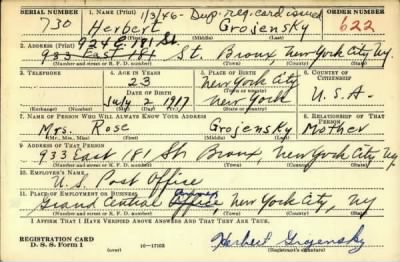 SERIAL NUMBER 1. NAME (Print) 1/3/46- Dup. reg. card issued ORDER NUMBER
730 Herbert Grojensky 622
(First) (Middle) (Last)
2. ADDRESS (Print) 924 E. 181 St.
933 East 181 St. Bronx, New York City Ny.
(Number and street or R. F. D. number) (Town) (County) (State)
3. TELEPHONE 4. AGE IN YEARS 5. PLACE OF BIRTH 6. COUNTRY OF CITIZENSHIP
23 New York City
DATE OF BIRTH (Town or county)
July 2, 1917 New York U.S.A.
(Exchange) (Number) (Mo.) (Day) (Yr.) (State or country)
7. NAME OF PERSON WHO WILL ALWAYS KNOW YOUR ADDRESS 8. RELATIONSHIP OF THAT PERSON
Mrs. Rose Grojensky Mother
(Mr., Mrs., Miss) (First) (Middle) (Last)
9. ADDRESS OF THAT PERSON
933 East 181 St. Bronx, New York City Ny
(Number and street or R. F. D. number) (Town) (County) (State)
10. EMPLOYER'S NAME
U.S. Post Office
11. PLACE OF EMPLOYMENT OR BUSINESS
Grand Central Office, New York City, Ny
(Number and street or R. F. D. number) (Town) (County) (State)
I AFFIRM THAT I HAVE VERIFIED ABOVE ANSWERS AND THAT THEY ARE TRUE.
REGISTRATION CARD
D. S. S. Form 1 (over) 16—17105 Herbert Grojensky
(Registrant's signature)